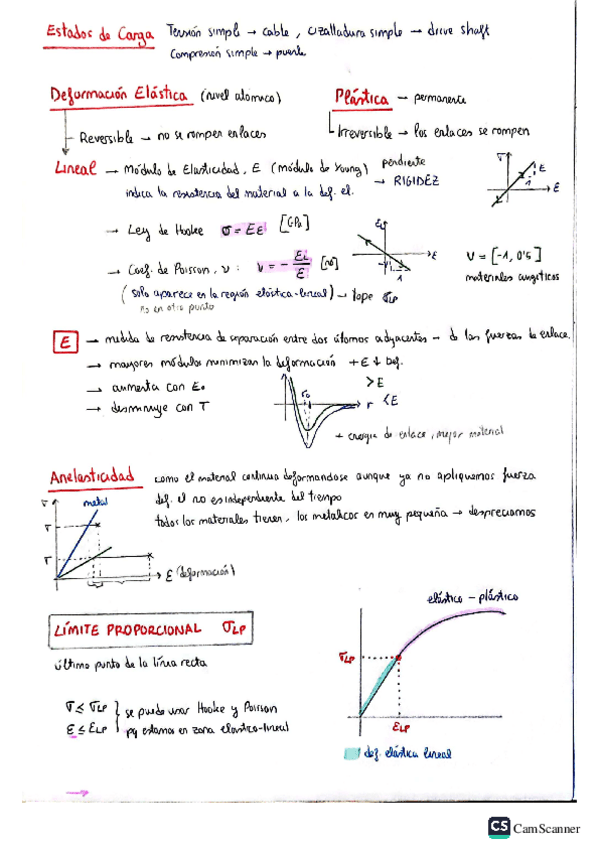 Estados de Carga   Tensión simple → cable, cizalladura simple → drive shaft
Compresión simple → puente
Deformación Elástica (nivel atomico)   Plástica – permanente
Reversible → no se rompen enlaces   Irreversible → los enlaces se rompen
Lineal → Módulo de Elasticidad, E (módulo de Young) pendiente → RIGIDEZ
indica la resistencia del material a la def. el.
σ
E
1
ε
→ Ley de Hooke σ = Eε [GPa]
→ Coef. de Poisson, ν : ν = - εL/ε
εL
ε
1
ν = [-1, 0'5]
(solo aparece en la región elástica-lineal) → tope σLP
no en otro punto
E → medida de resistencia de separación entre dos átomos adyacentes – d las fuerzas de enlace.
→ mayores módulos minimizan la deformación +E ↓ Def.
→ aumenta con E₀
→ disminuye con T
r₀
r
>E
<E
+ energía de enlace, mejor material
Anelasticidad   como el material continua deformandose aunque ya no apliquemos fuerza
def. el no es independiente del tiempo
todos los materiales tienen, los metalicos en muy pequeña → despreciamos
σ
metal
σ
σ
ε (deformación)
elástico – plástico
LÍMITE PROPORCIONAL σLP
último punto de la línea recta
σLP
εLP
σ ≤ σLP } se puede usar Hooke y Poisson
ε ≤ εLP } pq estamos en zona elastico-lineal
def. elástica lineal
CS CamScanner